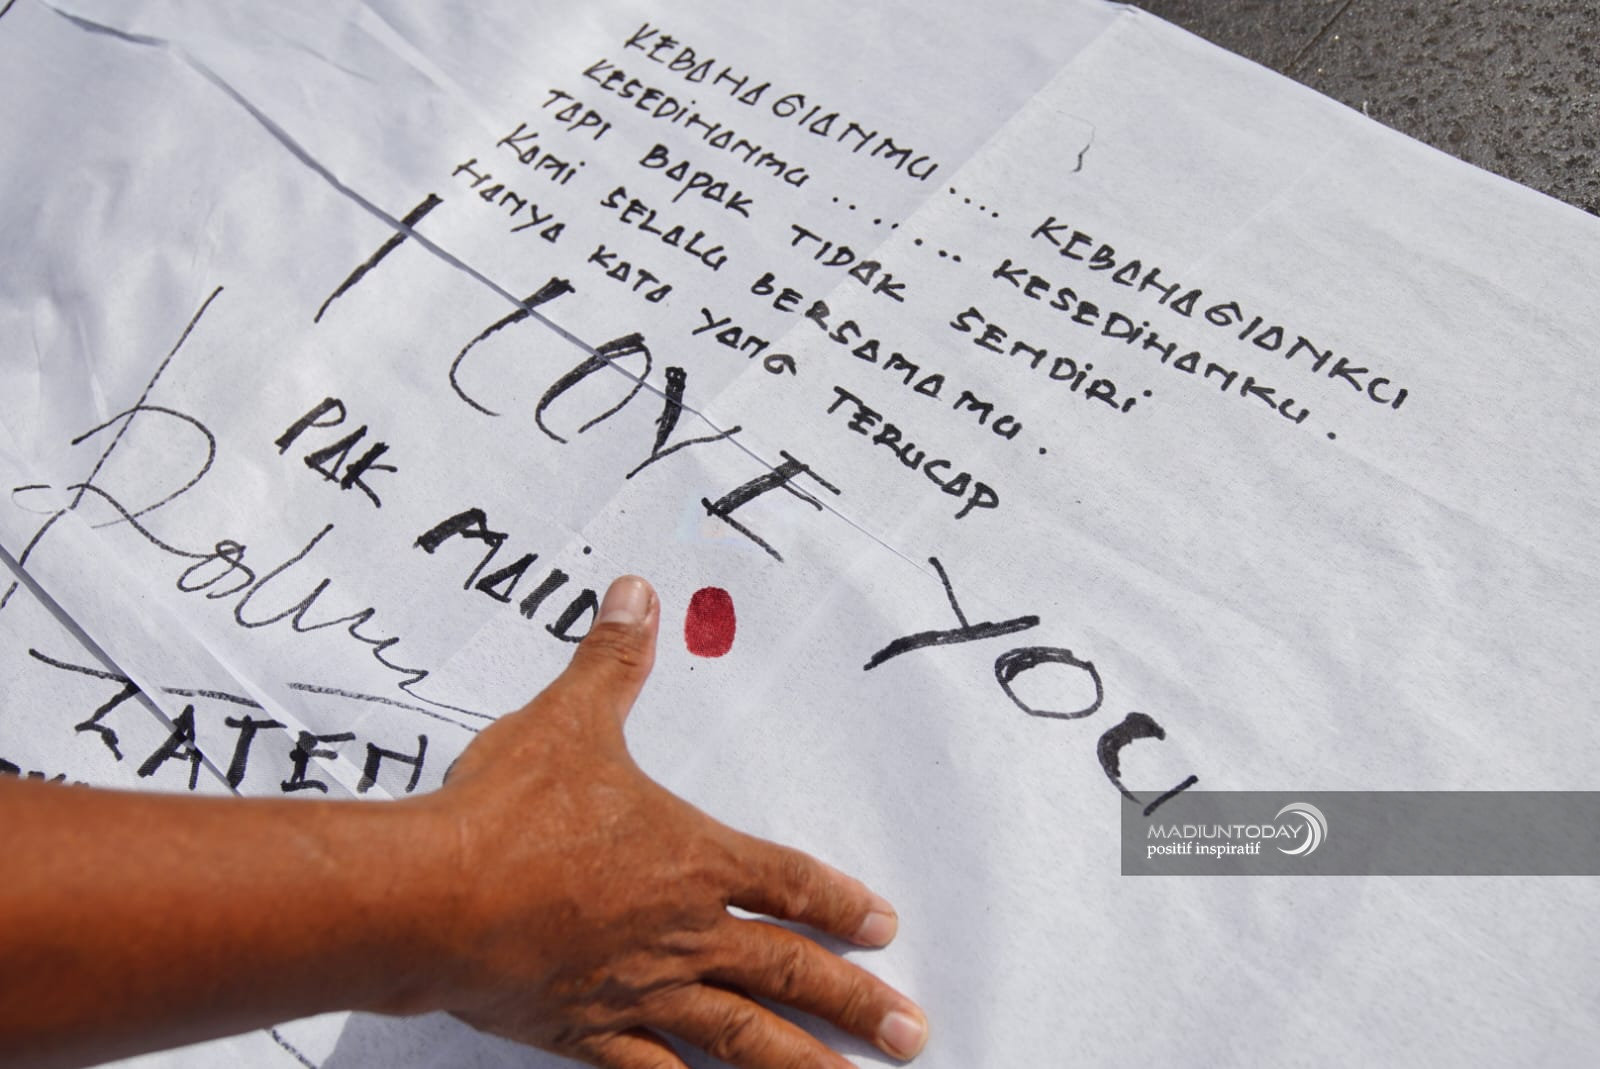 KEBAHAGIANMU .... KEBAHAGIANKU
KESEDIHANMU ........ KESEDIHANKU.
TAPI BAPAK TIDAK SENDIRI
KAMI SELALU BERSAMAMU.
HANYA KATA YANG TERUCAP
I LOVE YOU
PAK MAIDI
ZATEN
MADIUNTODAY
positif inspiratif